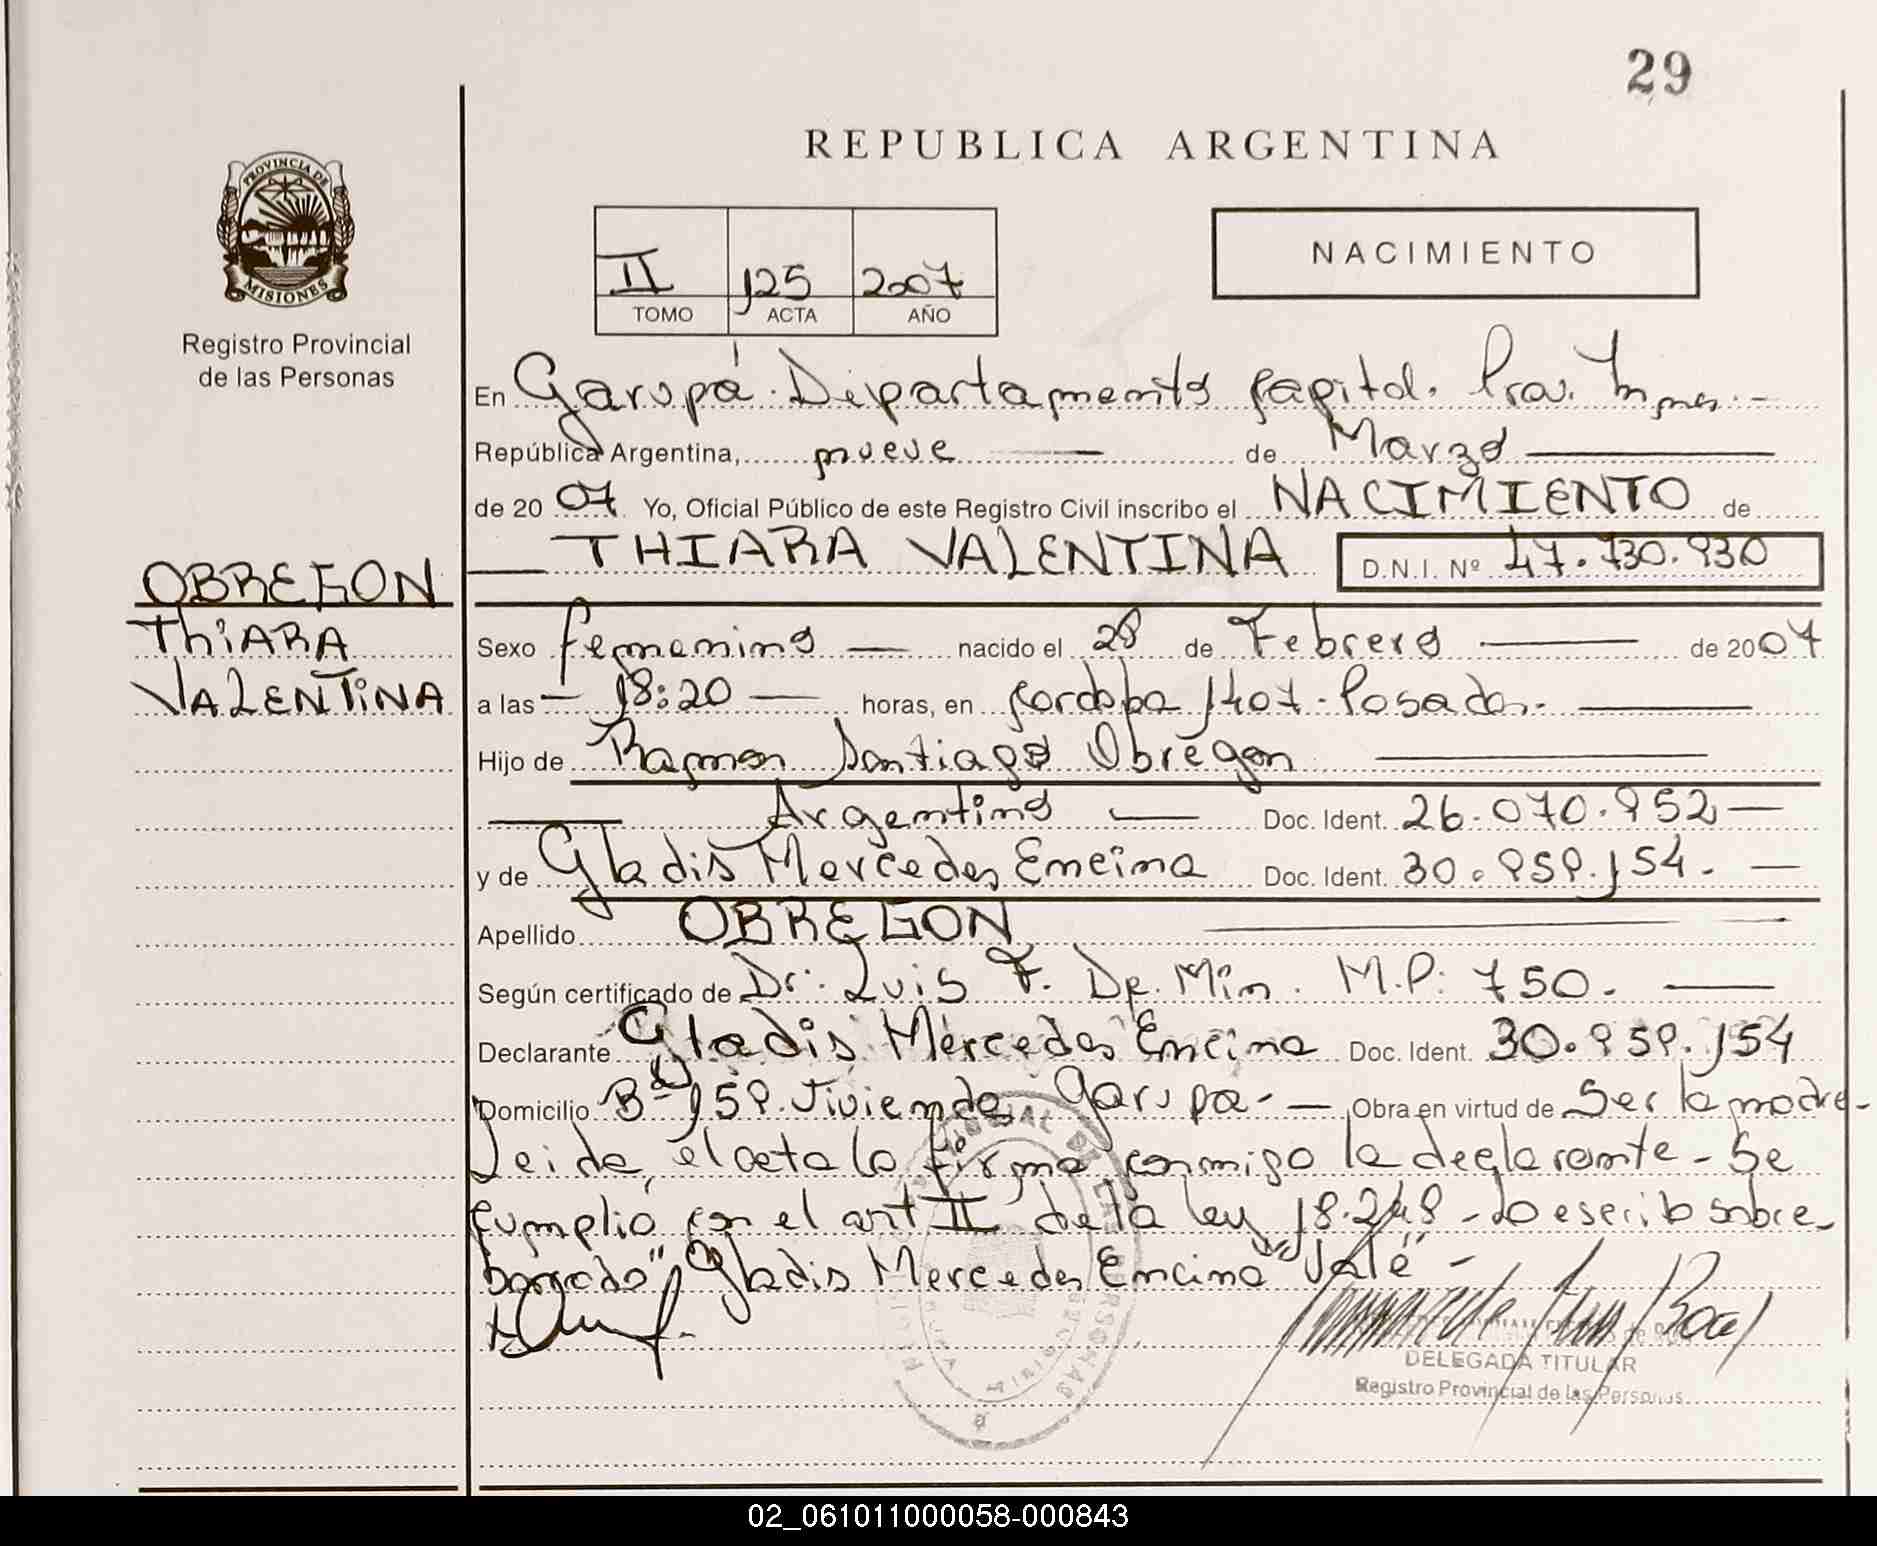 29
REPUBLICA ARGENTINA
PROVINCIA DE
MISIONES
Registro Provincial
de las Personas
II 125 2007
TOMO ACTA AÑO
NACIMIENTO
En Garupá. Departamento Capital. Prov. Mnes.-
República Argentina, nueve de Marzo
de 2007 Yo, Oficial Público de este Registro Civil inscribo el NACIMIENTO de
THIARA VALENTINA D.N.I. Nº 47.730.930
OBREGON
THiARA
VALENTiNA
Sexo femenino nacido el 28 de Febrero de 2007
a las - 18:20 - horas, en Cordoba 1407 - Posadas.-
Hijo de Ramon Santiago Obregon
Argentino Doc. Ident. 26.070.952 -
y de Gladis Mercedes Encina Doc. Ident. 30.959.154. -
Apellido OBREGON
Según certificado de Dr. Luis F. De. Min. M.P: 750.
Declarante Gladis Mercedes Encina Doc. Ident. 30.959.154
Domicilio Bº 159. Viviendas Garupa - Obra en virtud de Ser la madre-
Leida, el acta la firma conmigo la declarante - Se
cumplio con el art II de la ley 18.248 - Lo escrito sobre-
borrado" Gladis Mercedes Encina "Vale" -
DELEGADA TITULAR
Registro Provincial de las Personas
02_061011000058-000843